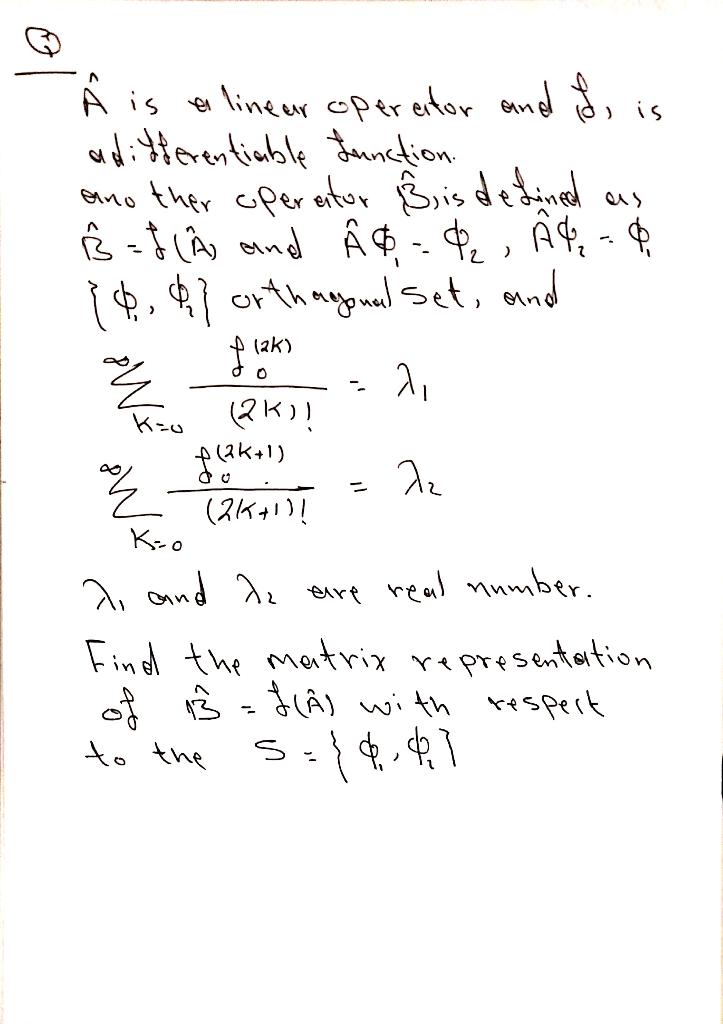 Q
Â is a linear operator and f, is
a differentiable function.
ano ther operator B̂, is defined as
B̂ = f(Â) and Âϕ₁ = ϕ₂, Âϕ₂ = ϕ₁
{ϕ₁, ϕ₂} orthagonal set, and
∞∑K=0 f₀⁽²ᴷ⁾/(2K)! = λ₁
∞∑K=0 f₀⁽²ᴷ⁺¹⁾/(2K+1)! = λ₂
λ₁ and λ₂ are real number.
Find the matrix representation
of B̂ = f(Â) with respect
to the S = {ϕ₁, ϕ₂}